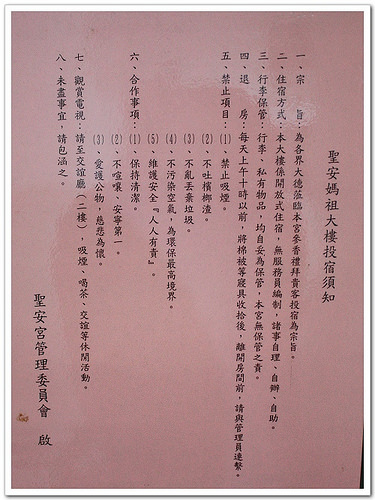 聖安媽祖大樓投宿須知
一、宗　　旨：為各界大德蒞臨本宮參香禮拜貴客投宿為宗旨。
二、住宿方式：本大樓係開放式住宿，無服務員編制，諸事自理、自辦、自助。
三、行李保管：行李、私有物品，均自妥為保管，本宮無保管之責。
四、退　　房：每天上午十時以前，將棉被等寢具收拾後，離開房間前，請與管理員連繫。
五、禁止項目：(1) 禁止吸煙。
(2) 不吐檳榔渣。
(3) 不亂丟棄垃圾。
(4) 不污染空氣，為環保最高境界。
(5) 維護安全『人人有責』。
六、合作事項：(1) 保持清潔。
(2) 不喧嚷、安寧第一。
(3) 愛護公物，慈悲為懷。
七、觀賞電視：請至交誼廳（二樓），吸煙、喝茶、交誼等休閒活動。
八、未盡事宜，請包涵之。
聖安宮管理委員會　啟